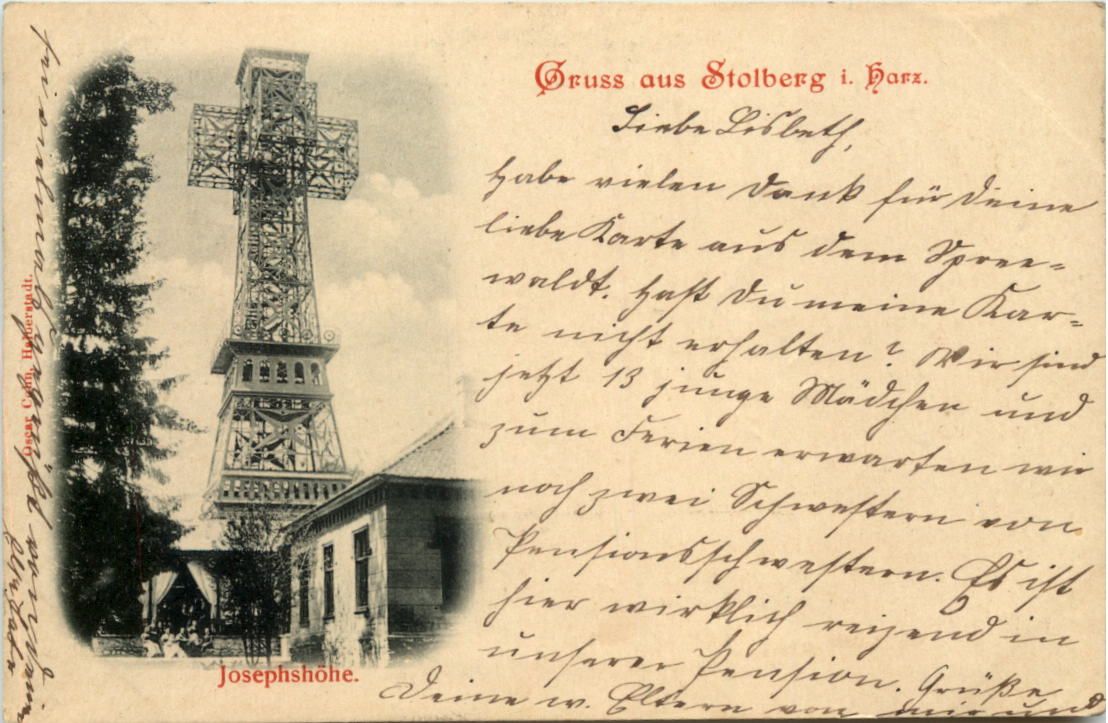 Gruss aus Stolberg i. Harz.
Liebe Lisbeth,
Habe vielen Dank für Deine
liebe Karte aus dem Spree=
waldt. Hast Du meine Kar=
te nicht erhalten? Wir sind
jetzt 13 junge Mädchen und
zum Ferien erwarten wir
noch zwei Schwestern von
Pensionsschwestern. Es ist
hier wirklich reizend in
unserer Pension. Grüße
Deine w. Eltern von mir und
sei vielmals gegrüßt von Deiner
Josephshöhe.
Oscar Cohn, Halberstadt.